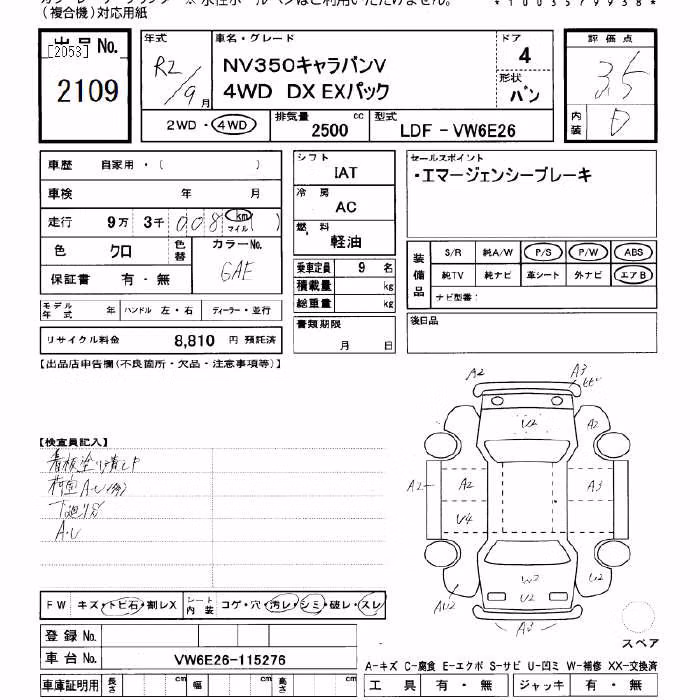 (複合機)対応用紙
出品No. [2053]
2109
年式 R2/9月
車名・グレード
NV350キャラバンV
4WD DX EXパック
ドア 4
形状 バン
評価点 3.5
内装 D
2WD・4WD 排気量 2500 cc 型式 LDF-VW6E26
車歴 自家用・( )
車検 年 月
走行 9万 3千 008 km マイル ( )
色 クロ 色替 カラーNo. GAE
保証書 有・無
モデル年式 年 ハンドル 左・右 ディーラー・並行
リサイクル料金 8,810 円 預託済
シフト IAT
冷房 AC
燃料 軽油
乗車定員 9 名
積載量 kg
総重量 kg
書類期限
月 日
セールスポイント
・エマージェンシーブレーキ
装備品 S/R 純A/W P/S P/W ABS
純TV 純ナビ 革シート 外ナビ エアB
ナビ型番:
後日品
【出品店申告欄(不良箇所・欠品・注意事項等)】
【検査員記入】
下廻りS
A.U
A2 A3
U2 A2
A2 A2 A3
U4
W2 U2
AU2 U2 U2
A3
スペア
FW キズ・トビ石・割レX シート内装 コゲ・穴・汚レ・シミ・破レ・スレ
登録No.
車台No. VW6E26-115276
車庫証明用 長さ cm 幅 cm 高さ cm
A-キズ C-腐食 E-エクボ S-サビ U-凹ミ W-補修 XX-交換済
工具 有・無 ジャッキ 有・無